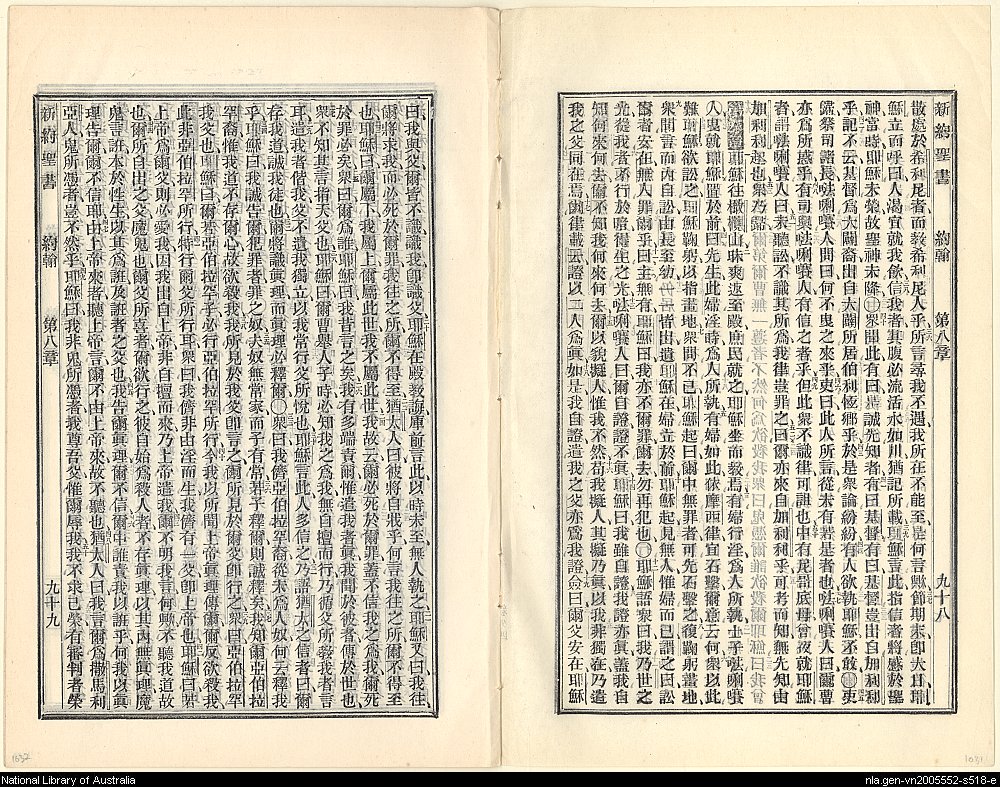 新約聖書 約翰 第八章 九十八
散處於希利尼者而敎希利尼人乎所言尋我不遇我所在不能至是何言與節期末卽大日耶
穌立而呼曰人渴宜就我飮信我者其腹必流活水如川猶記所載耶穌言此指信者將感於聖
神當時耶穌未榮故聖神未降○衆聞此有曰是誠先知者有曰基督有曰基督豈出自加利利
乎記不云基督爲大闢裔出自大闢所居伯利恆鄉乎於是衆論紛紛有人欲執耶穌不敢○吏
歸祭司諸長𠵽唎㘔人間曰何不曳之來乎吏曰此人所言從未有若是者也𠵽唎㘔人曰爾曹
亦爲所惑乎有司與𠵽唎㘔人有信之者乎但此衆不識律可詛也中有尼哥底母曾夜就耶穌
者謂𠵽唎㘔人曰未聽訟不識其所爲我律豈罪之曰爾亦來自加利利乎可考而知無先知由
加利利起也衆乃歸
耶穌往橄欖山昧爽返至殿庶民就之耶穌坐而敎焉有婦行淫爲人所執士子𠵽唎㘔
人曳就耶穌置於前曰先生此婦淫時爲人所執有婦如此依摩西律宜石擊爾意云何衆以此
難耶穌欲訟之耶穌鞠躬以指畫地衆問不已耶穌起曰爾中無罪者可先石擊之復鞠躬畫地
衆聞言而內自訟由長至幼一一皆出遺耶穌在婦立於前耶穌起見無人惟婦而已謂之曰訟
爾者安在無人罪爾乎曰主無有耶穌曰我亦不爾罪爾去勿再犯也○耶穌語衆曰我乃世之
光從我者不行於暗得生之光𠵽唎㘔人曰爾自證證不眞耶穌曰我雖自證我證亦眞蓋我自
知何來何去爾不知我何來何去爾以貌擬人惟我不然苟我擬人其擬乃眞以我非獨在乃遣
我之父同在焉爾律載云證以二人爲眞如是我自證遣我之父亦爲我證僉曰爾父安在耶穌
曰我與父爾皆不識識我卽識父耶穌在殿敎誨庫前言此以時未至無人執之耶穌又曰我往
爾將求我而必死於爾罪我往之所爾不得至猶太人曰彼將自戕乎何言我往之所爾不得至
也耶穌曰爾屬下我屬上爾屬此世我不屬此世我故云爾必死於爾罪蓋不信我之爲我爾死
於罪必矣衆曰爾爲誰耶穌曰我昔言之矣我有多端責爾惟遣我者眞我聞於彼者傳於世也
衆不知其言指天父也耶穌曰爾曹舉人子時必知我之爲我無自擅而行乃循父所敎我者言
耳遣我者偕我父不遺我獨立以我常行父所悅也耶穌言此人多信之乃語猶太之信者曰爾
存我道誠我徒也爾將識眞理而眞理必釋爾○衆曰我儕亞伯拉罕裔從未爲人奴何云釋我
乎耶穌曰我誠告爾犯罪者罪之奴夫奴無常家而子有常若子釋爾則誠釋矣我知爾亞伯拉
罕裔惟我道不存爾心故欲殺我我以所見於我父卽言之爾所見於爾父卽行之衆曰亞伯拉罕
我父也耶穌曰爾若亞伯拉罕子必行亞伯拉罕所行今我以所聞上帝眞理傳爾爾反欲殺我
此非亞伯拉罕所行特行爾父所行耳衆曰我儕非由淫而生我儕有一父卽上帝也耶穌曰若
上帝爲爾父則必愛我因我出自上帝非自擅而來乃上帝遣我爾不明我言何與不聽我道故
也爾所自出之父魔鬼也爾父所喜者爾欲行之彼自始爲殺人者不存眞理以其內無眞理魔
鬼言誑本於性生以其爲誑及誑者之父也我告爾眞理爾不信爾中誰責我以誑乎何我以眞
理告爾爾不信耶由上帝來者聽上帝言爾不由上帝來故不聽也猶太人曰我言爾爲撒馬利
亞人鬼所憑者豈不然乎耶穌曰我非鬼所憑者我尊吾父惟爾辱我我不求己榮有審判者榮
新約聖書 約翰 第八章 九十九
1037
1031
National Library of Australia
nla.gen-vn2005552-s518-e